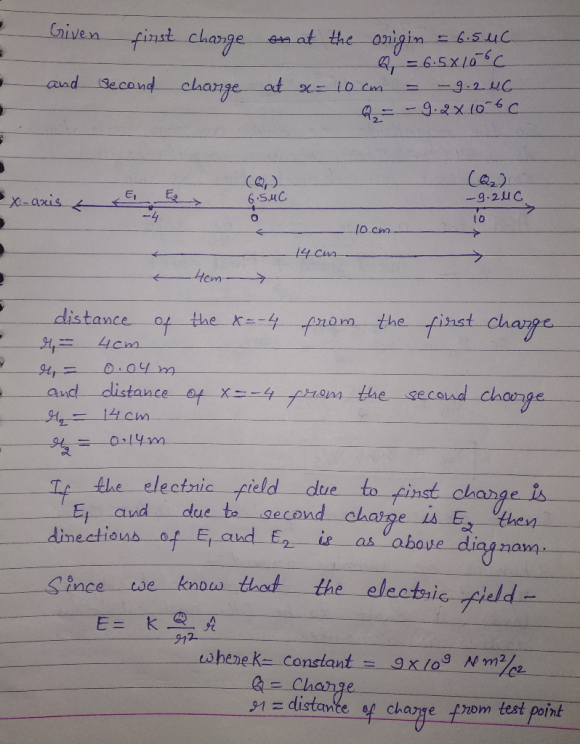 Given first charge at the origin = 6.5 μC
Q₁ = 6.5×10⁻⁶C
and second charge at x = 10 cm = -9.2 μC
Q₂ = -9.2×10⁻⁶ C
(Q₁) (Q₂)
x-axis E₁ E₂ 6.5μC -9.2μC
-4 0 10
10 cm
14 cm
4cm
distance of the x=-4 from the first charge
r₁ = 4cm
r₁ = 0.04 m
and distance of x=-4 from the second charge
r₂ = 14cm
r₂ = 0.14m
If the electric field due to first charge is
E₁ and due to second charge is E₂ then
directions of E₁ and E₂ is as above diagram.
Since we know that the electric field -
E = K Q/r² r̂
where K = constant = 9×10⁹ N m²/c²
Q = Charge
r = distance of charge from test point